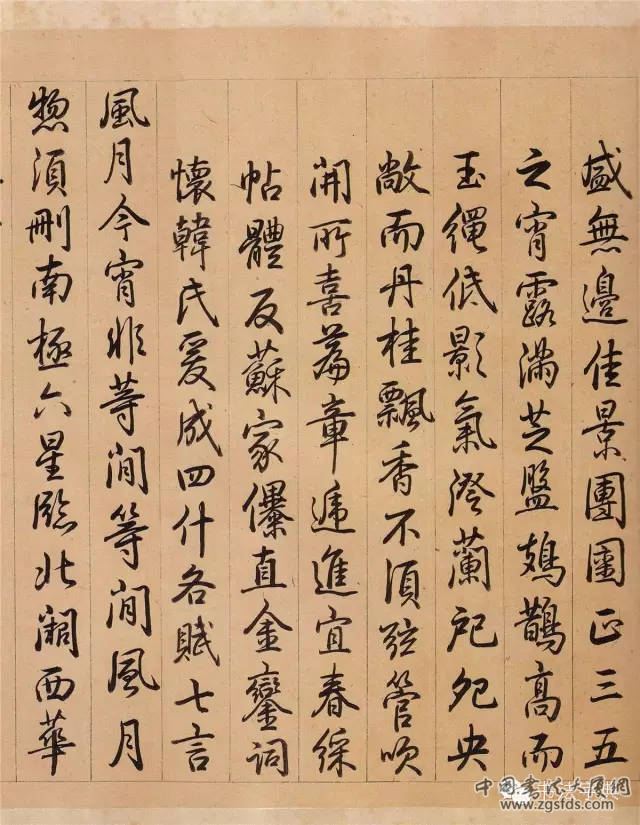 盛無邊佳景團圞正三五
之宵露滿芝盤鳷鵲高而
玉繩低影氣澄蘭戺夗央
敞而丹桂飄香不須弦管吹
開所喜篇章遞進宜春綵
帖體反蘇家儤直金鑾詞
懷韓氏爰成四什各賦七言
風月今宵非等閒等閒風月
惣須刪南極六星臨北闕西華
中国书法大厦网
www.zgsfds.com